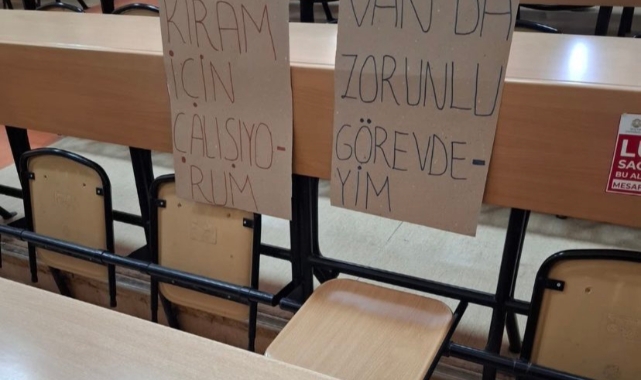 KİRAM
İÇİN
ÇALIŞIYO-
RUM
VAN DA
ZORUNLU
GÖREVDE-
YİM
BU AL
MESAF